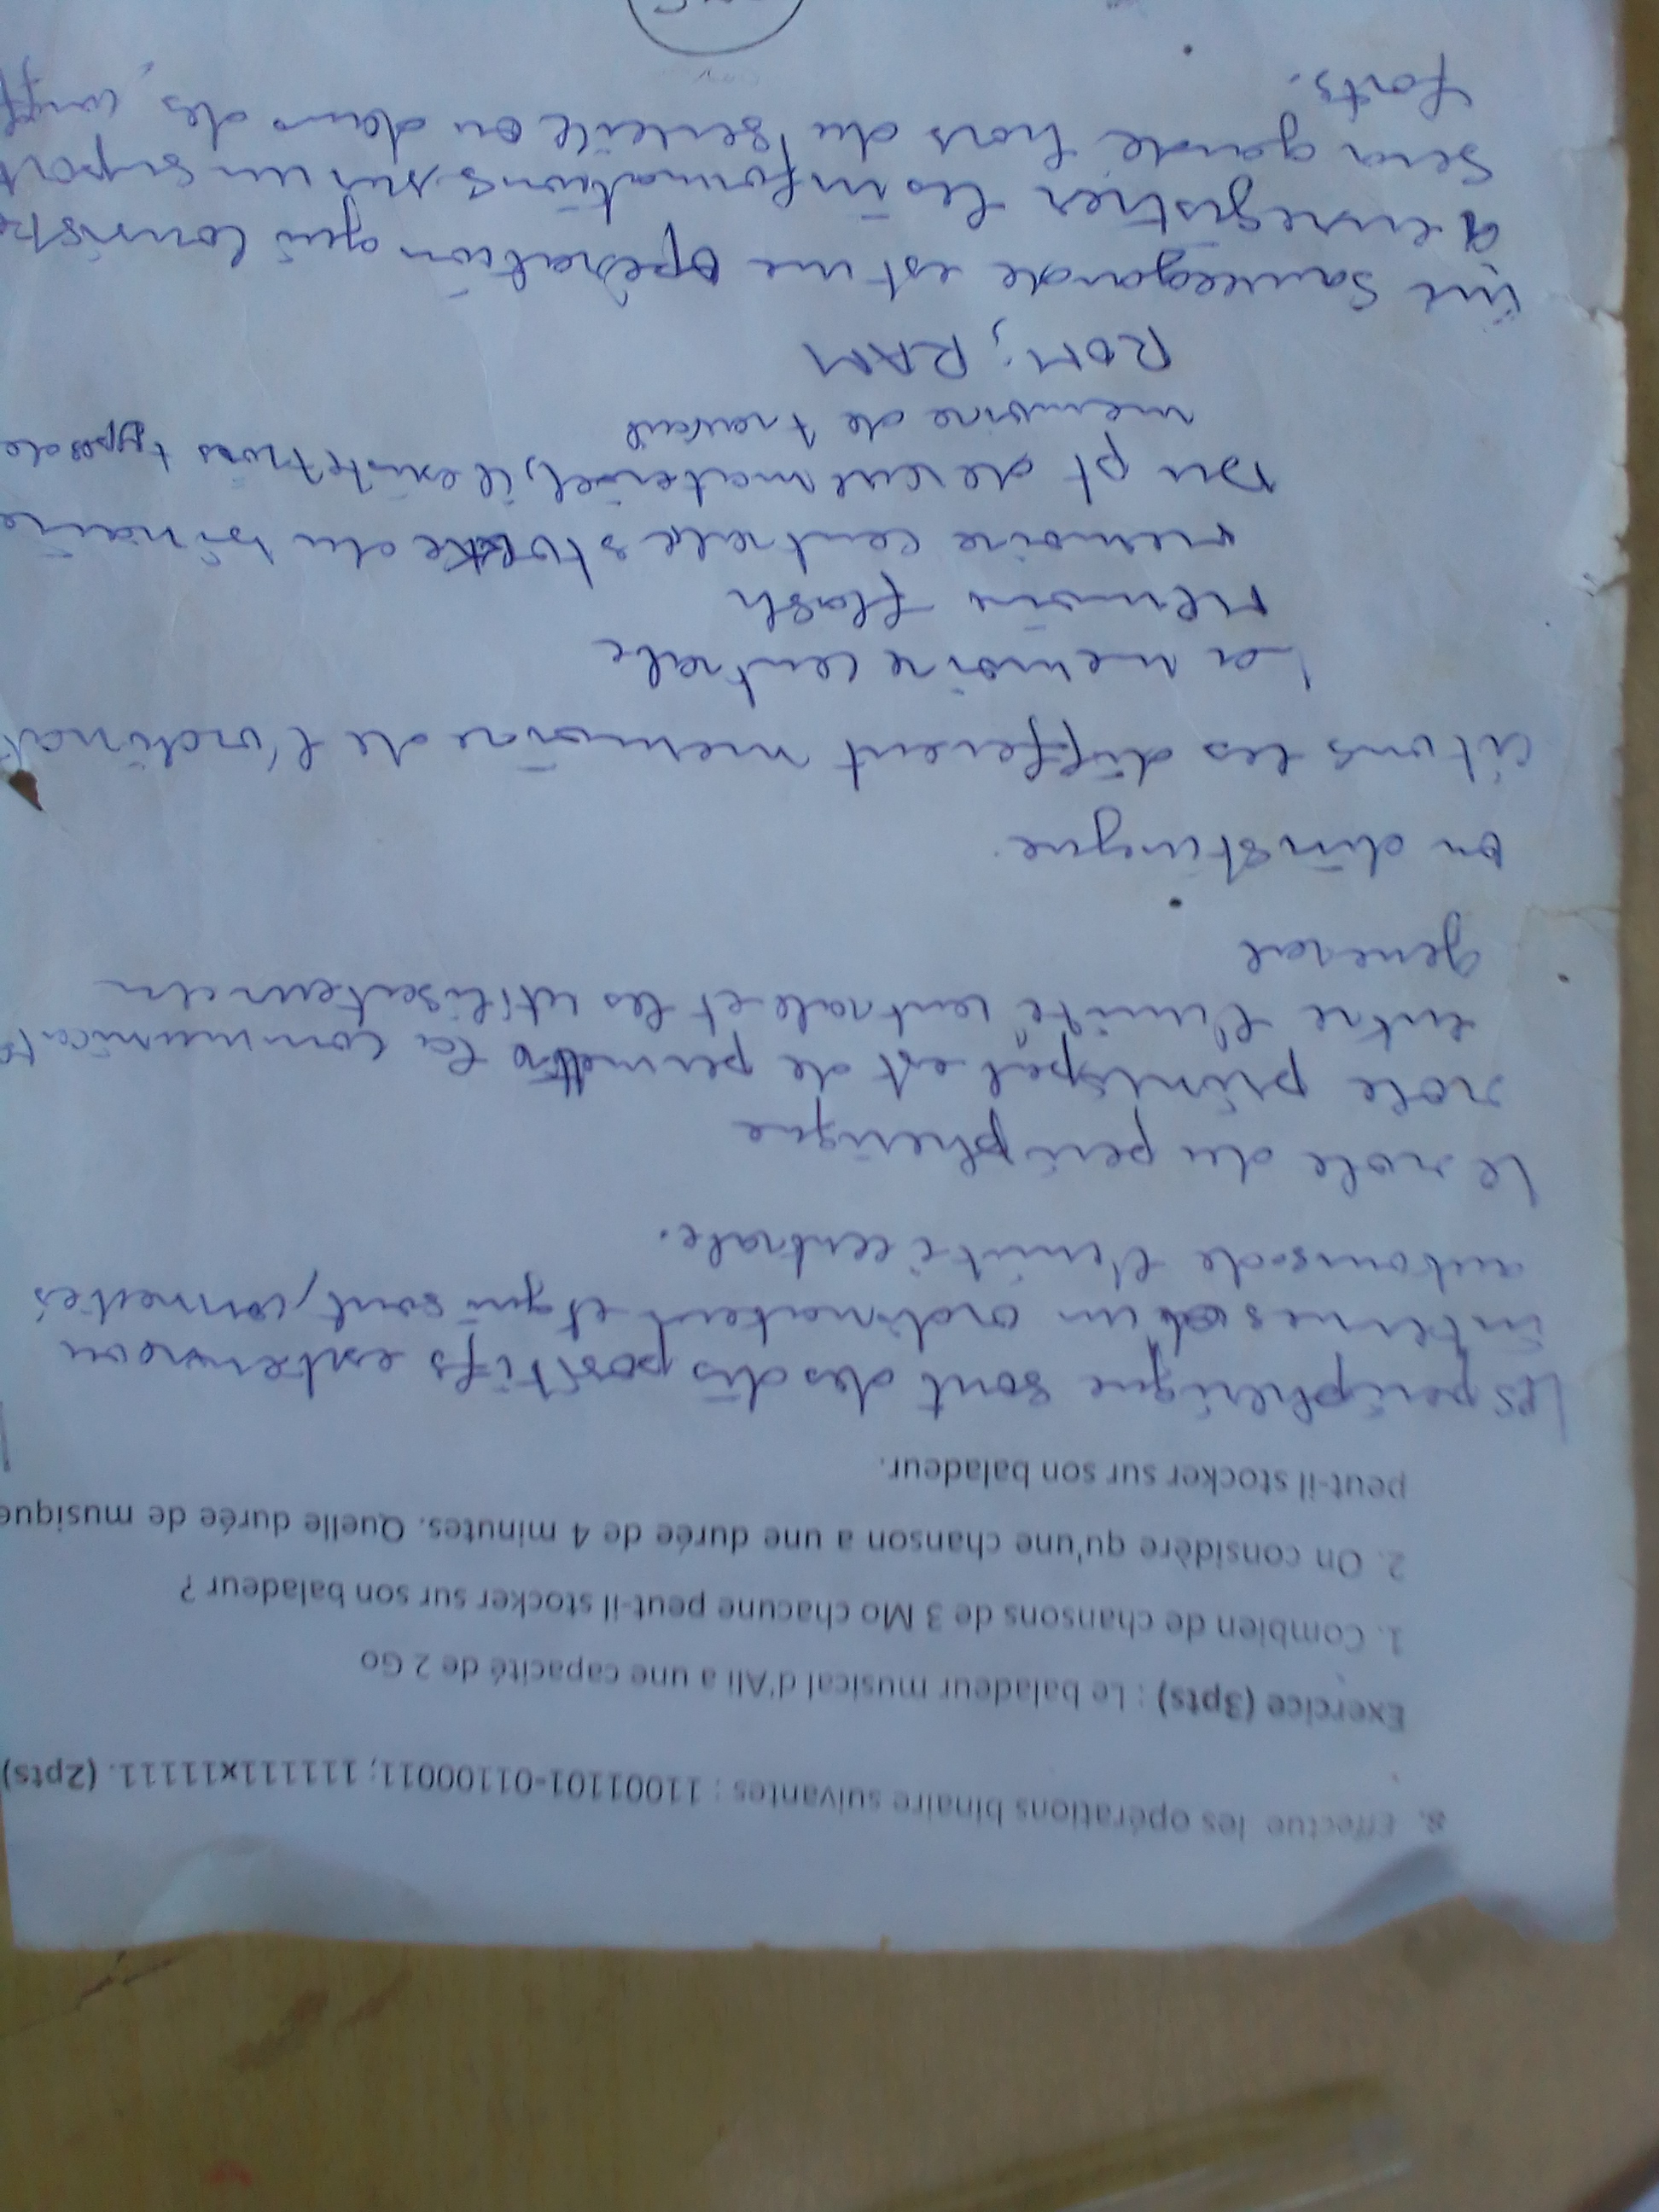 8. Effectue les opérations binaire suivantes : 11001101-01100011; 111111x11111. (2pts)
Exercice (3pts) : Le baladeur musical d'Ali a une capacité de 2 Go
1. Combien de chansons de 3 Mo chacune peut-il stocker sur son baladeur ?
2. On considère qu'une chanson a une durée de 4 minutes. Quelle durée de musique
peut-il stocker sur son baladeur.
Les peripherique sont des dis positifs externe ou
internes d'un ordinateur et qui sont connectés
autours de l'unité centrale.
Le role du peripherique
role printipal est de permettre la communicat
entre l'unité centrale et les utilisateur en
general
on dinstingue.
citons les different memoire de l'ordinat
La memoire centrale
memoire flash
memoire centrale stocke du binaire
Du pt de vue materiel, il existe trois types de
memoire de travail
ROM; RAM
une sauvegarde est une operation qui consiste
a enregistrer les informations sur un support
garde hors du ou dans des
forts.